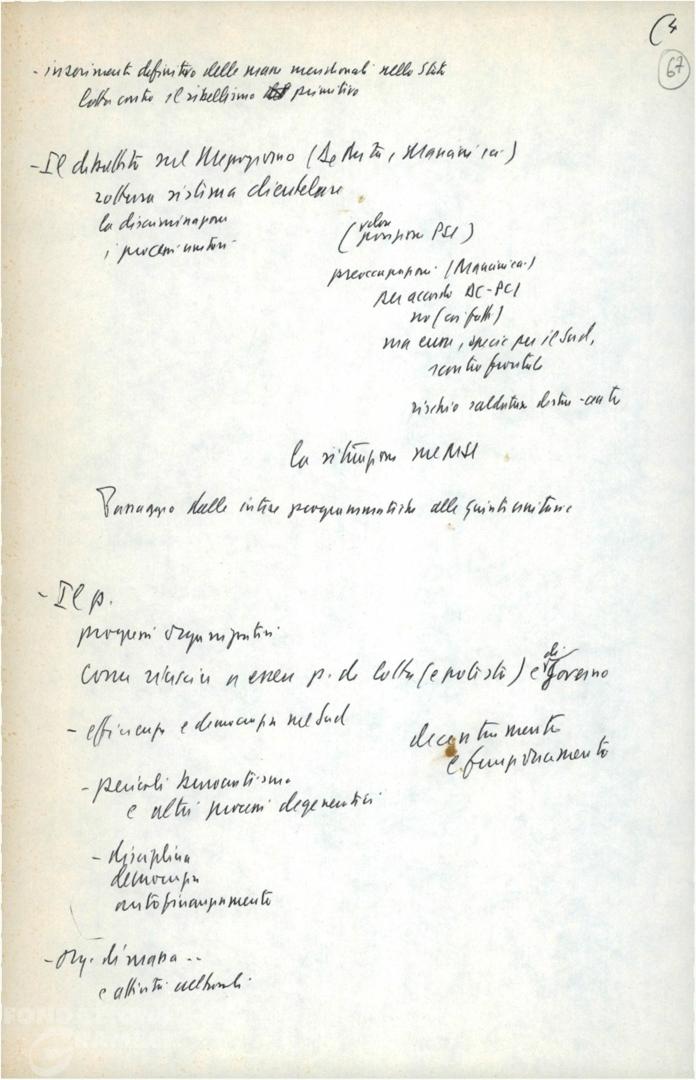 (4
67
- inserimento definitivo delle masse meridionali nello Stato
lotta contro il ribellismo primitivo
- Il dibattito sul Mezzogiorno (De Mita, Mancini ecc.)
rottura sistema clientelare
la discriminazione
i processi unitari
(valore
posizione PSI)
preoccupazioni (Mancini ecc.)
per accordo DC-PCI
no (coi fatti)
ma , specie per il Sud,
scontro frontale
rischio saldatura destra-centro
la situazione nel PSI
Passaggio dalle intese programmatiche alle giunte unitarie
- Il p.
progressi organizzativi
Come riuscire a essere p. di lotta (e protesta) e di governo
- efficienza e democrazia nel Sud
decentramento
e funzionamento
- pericoli burocratismo
e altri processi degenerativi
- disciplina
democrazia
autofinanziamento
- Org. di massa ..
e attività culturali